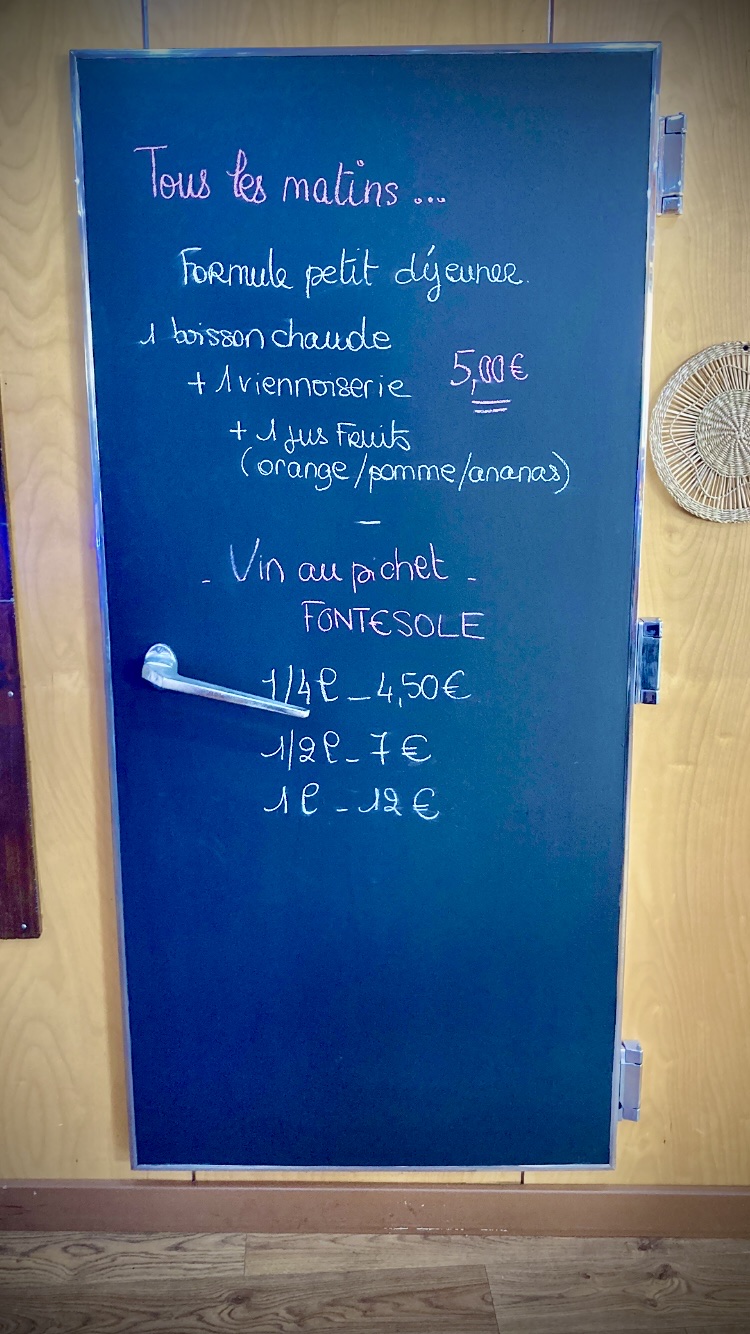 Tous les matins...
Formule petit déjeuner.
1 boisson chaude
+ 1 viennoiserie
5,00€
+ 1 jus Fruits
(orange/pomme/ananas)
—
- Vin au pichet -
FONTESOLE
1/4l - 4,50€
1/2l - 7€
1l - 12€